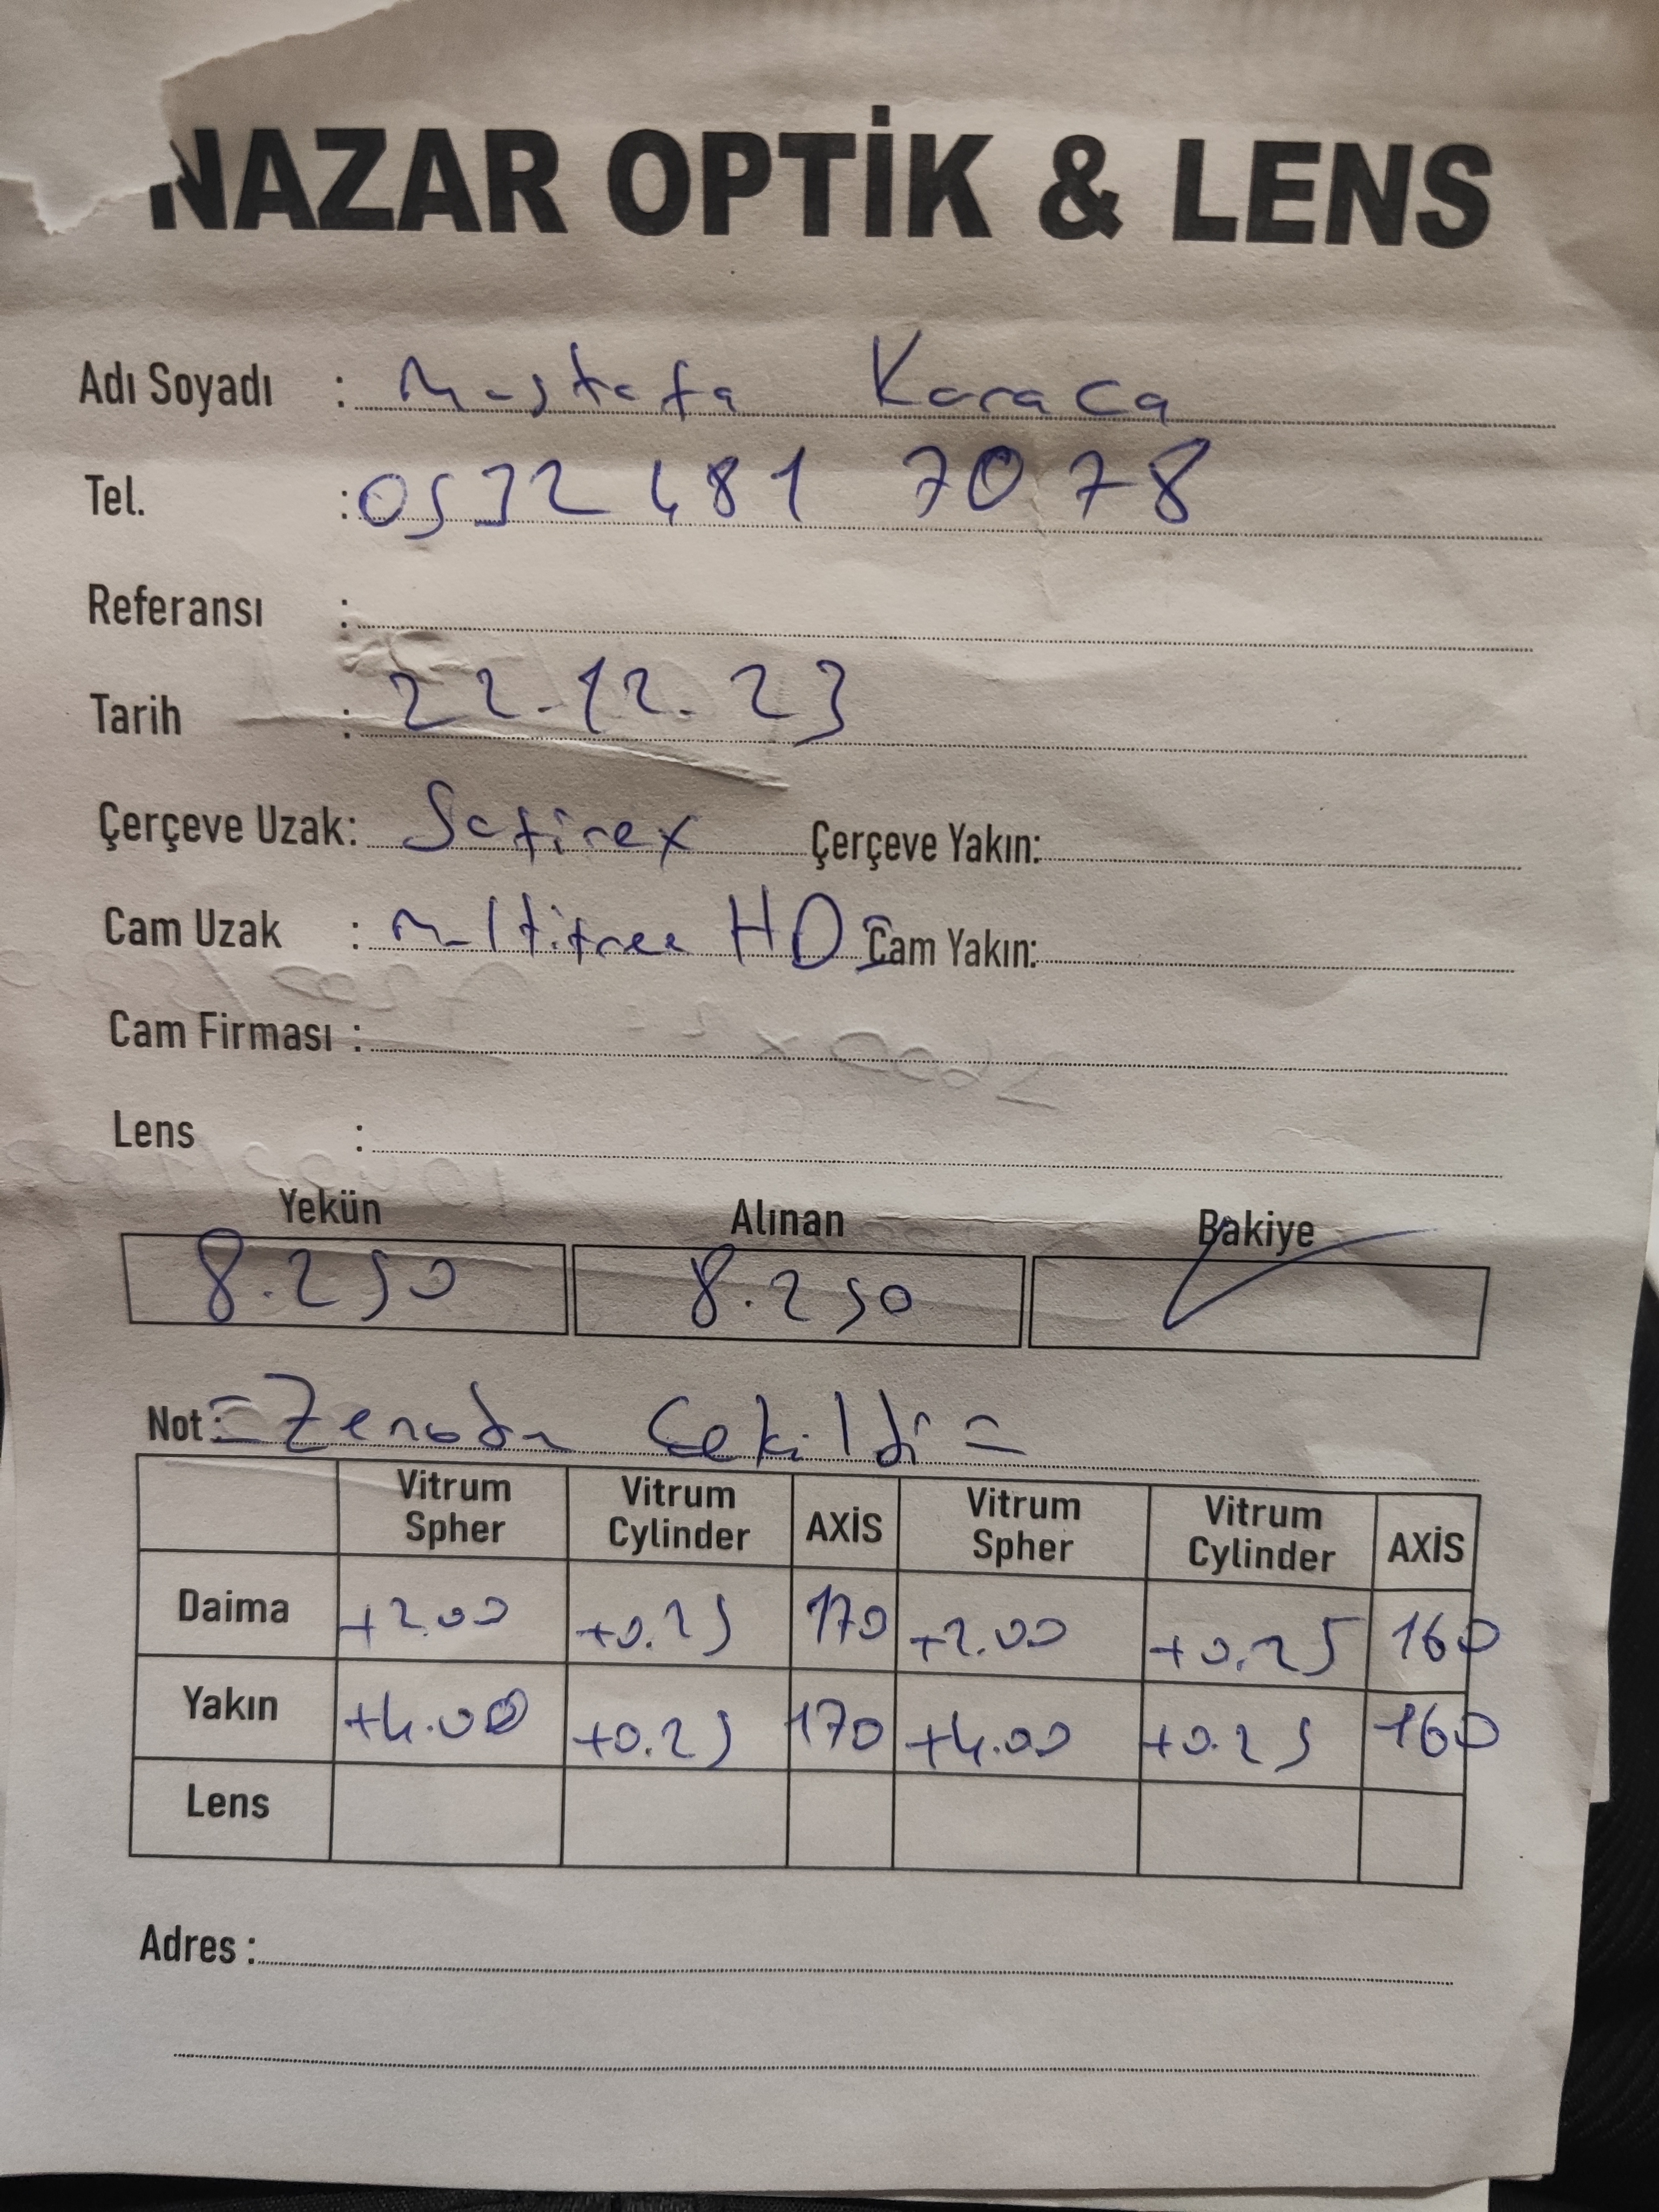 NAZAR OPTİK & LENS
Adı Soyadı : Mustafa Karaca
Tel. : 0532 481 7078
Referansı :
Tarih : 22.12.23
Çerçeve Uzak: Safirex Çerçeve Yakın:
Cam Uzak : Multifree HD Cam Yakın:
Cam Firması :
Lens :
Yekün Alınan Bakiye
8.250 8.250
Not: = Zenoda Çekildi =
Vitrum Spher Vitrum Cylinder AXİS Vitrum Spher Vitrum Cylinder AXİS
Daima +2.00 +0.25 170 +2.00 +0.25 160
Yakın +4.00 +0.25 170 +4.00 +0.25 160
Lens
Adres :